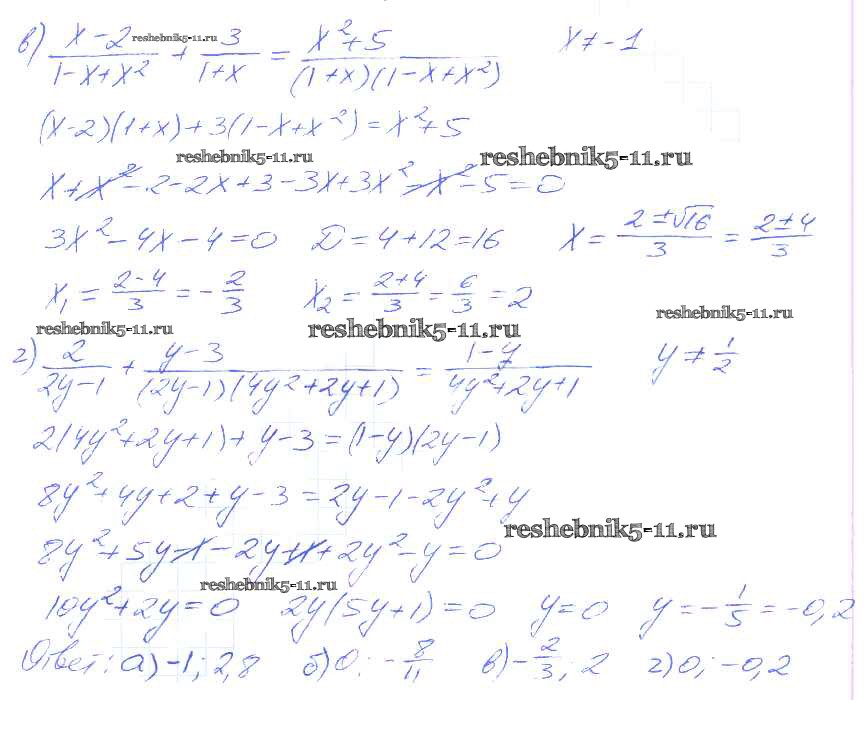 в) (x-2)/(1-x+x²) + 3/(1+x) = (x²+5)/((1+x)(1-x+x²)) x ≠ -1
reshebnik5-11.ru
(x-2)(1+x)+3(1-x+x²)=x²+5
reshebnik5-11.ru reshebnik5-11.ru
x+x²-2-2x+3-3x+3x²-x²-5=0
3x²-4x-4=0 D=4+12=16 x = (2±√16)/3 = (2±4)/3
x₁ = (2-4)/3 = -2/3 x₂ = (2+4)/3 = 6/3 = 2
reshebnik5-11.ru reshebnik5-11.ru reshebnik5-11.ru
г) 2/(2y-1) + (y-3)/((2y-1)(4y²+2y+1)) = (1-y)/(4y²+2y+1) y ≠ 1/2
2(4y²+2y+1)+y-3=(1-y)(2y-1)
8y²+4y+2+y-3=2y-1-2y²+y
reshebnik5-11.ru
8y²+5y-1-2y+1+2y²-y=0
reshebnik5-11.ru
10y²+2y=0 2y(5y+1)=0 y=0 y=-1/5=-0,2
Ответ: а) -1; 2,8 б) 0; -8/11 в) -2/3; 2 г) 0; -0,2